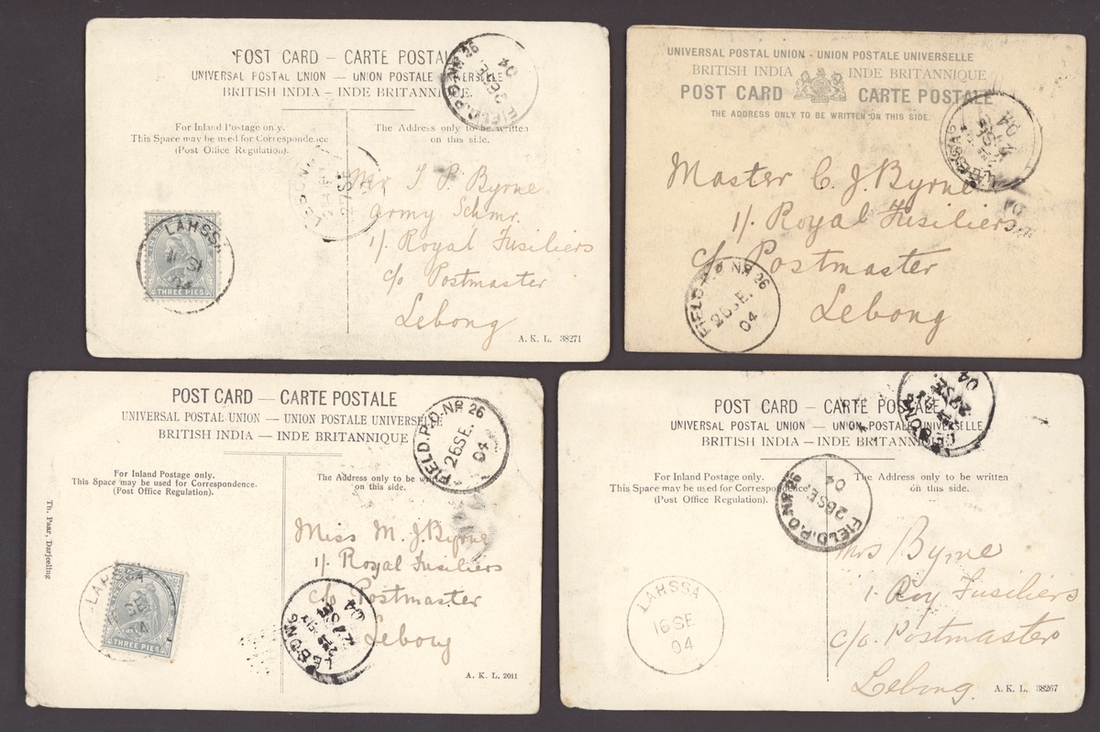 POST CARD — CARTE POSTALE
UNIVERSAL POSTAL UNION — UNION POSTALE UNIVERSELLE
BRITISH INDIA — INDE BRITANNIQUE.
For Inland Postage only.
This Space may be used for Correspondence
(Post Office Regulation).
The Address only to be written
on this side.
FIELD.P.O.NR 26
26 SE.
04
27 SE
LAHSSA
THREE PIES
Byrne
Army Schmr.
1/. Royal Fusiliers
c/o Postmaster
Lebong
A. K. L. 38271
UNIVERSAL POSTAL UNION - UNION POSTALE UNIVERSELLE
BRITISH INDIA INDE BRITANNIQUE
POST CARD CARTE POSTALE
THE ADDRESS ONLY TO BE WRITTEN ON THIS SIDE.
04
Master C. J. Byrne
1/. Royal Fusiliers
c/o Postmaster
Lebong
FIELD.P.O NR 26
26 SE.
04
POST CARD — CARTE POSTALE
UNIVERSAL POSTAL UNION — UNION POSTALE UNIVERSELLE
BRITISH INDIA — INDE BRITANNIQUE
For Inland Postage only.
This Space may be used for Correspondence.
(Post Office Regulation).
The Address only to be written
on this side.
FIELD.P.O.NR 26
26 SE.
04
Th. Paar, Darjeeling
LAHSSA
SE
THREE PIES
Miss M. J. Byrne
1/. Royal Fusiliers
c/o Postmaster
Lebong
LEBONG
27 SE
04
A. K. L. 2011
POST CARD — CARTE POSTALE
UNIVERSAL POSTAL UNION — UNION POSTALE UNIVERSELLE
BRITISH INDIA — INDE BRITANNIQUE
For Inland Postage only.
This Space may be used for Correspondence
(Post Office Regulation).
The Address only to be written
on this side.
LEBONG
27 SE
04
FIELD.P.O.NR 26
26 SE.
04
LAHSSA
16 SE
04
Mrs Byrne
1. Roy Fusiliers
c/o. Postmaster
Lebong.
A. K. L. 38267